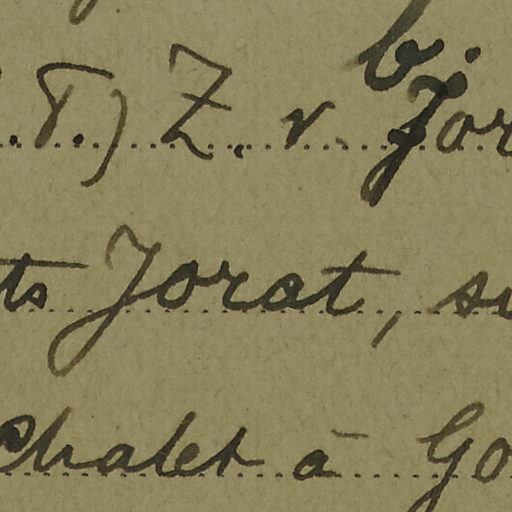 .T.) Z. v. b. Jor
ts Jorat, su
Chalet à Go